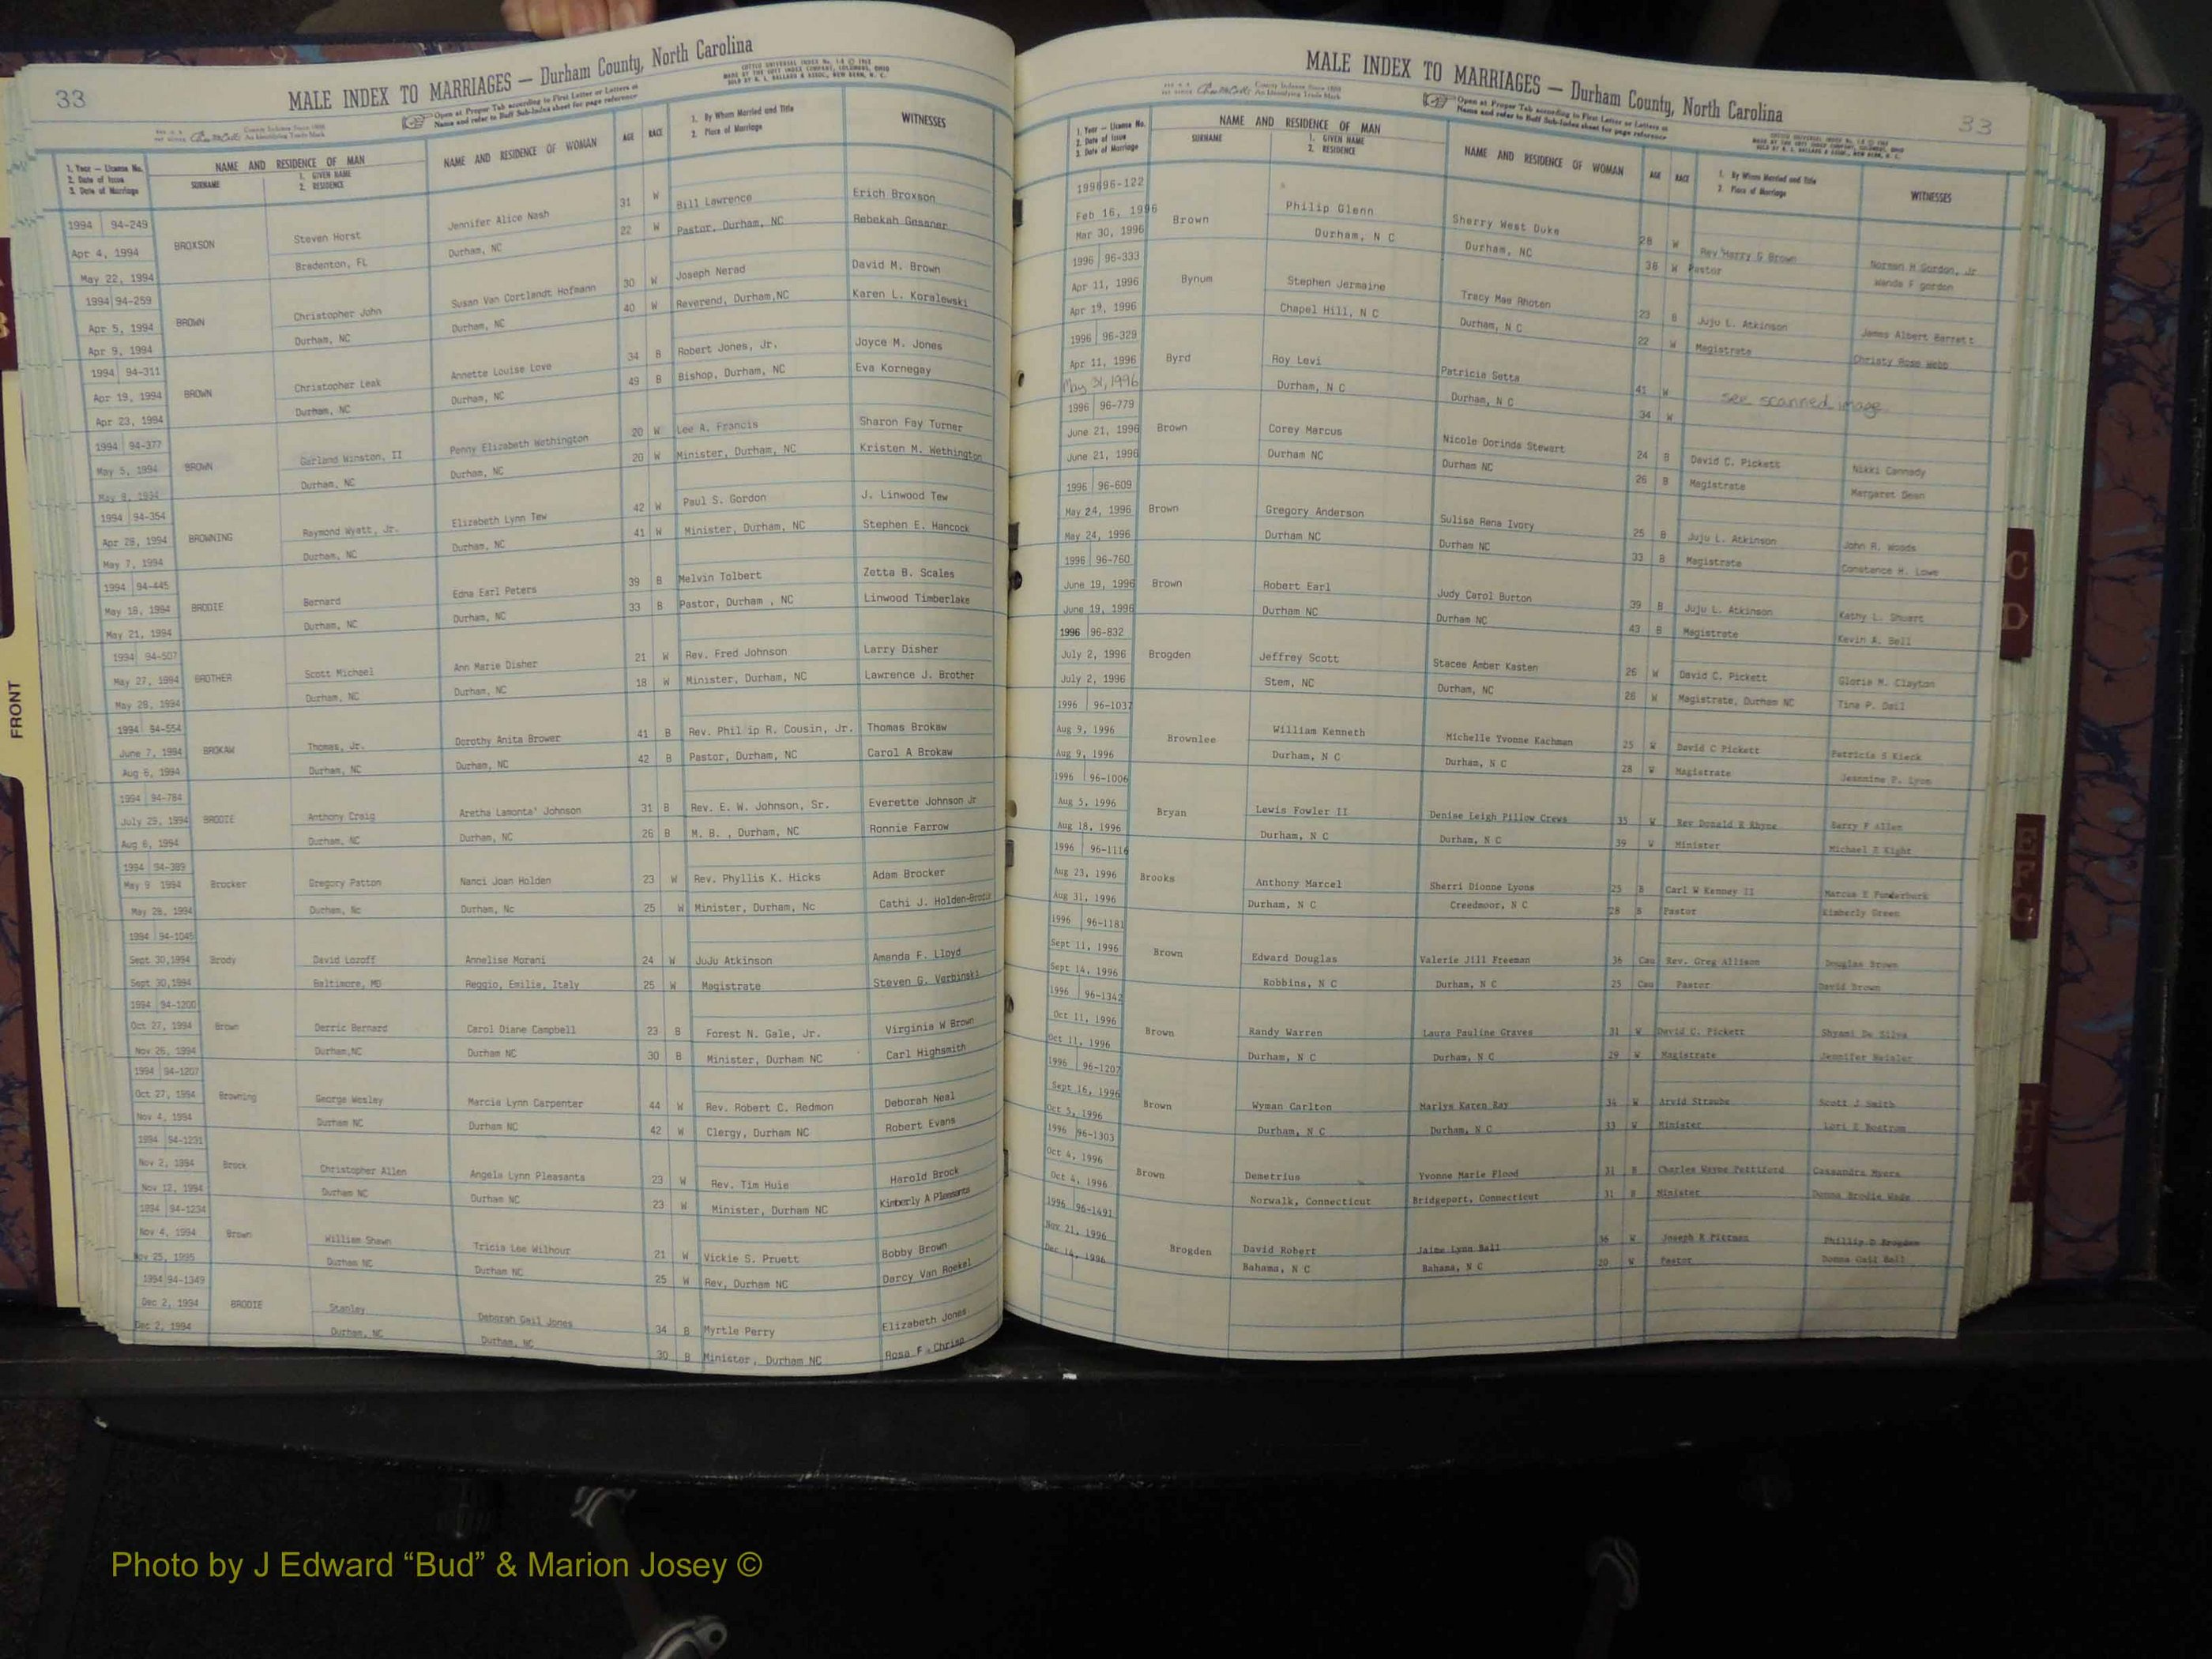 33
MALE INDEX TO MARRIAGES — Durham County, North Carolina
Open at Proper Tab according to First Letter or Letters of
Name and refer to Buff Sub-Index sheet for page reference
1. Year — License No. NAME AND RESIDENCE OF MAN NAME AND RESIDENCE OF WOMAN AGE RACE 1. By Whom Married and Title WITNESSES
2. Date of Issue SURNAME 1. GIVEN NAME 2. Place of Marriage
3. Date of Marriage 2. RESIDENCE
1994 94-249 Jennifer Alice Nash 31 W Bill Lawrence Erich Broxson
Apr 4, 1994 BROXSON Steven Horst Durham, NC 22 W Pastor, Durham, NC Rebekah Gessner
May 22, 1994 Bradenton, FL
1994 94-259 Susan Van Cortlandt Hofmann 30 W Joseph Nerad David M. Brown
Apr 5, 1994 BROWN Christopher John Durham, NC 40 W Reverend, Durham,NC Karen L. Koralewski
Apr 9, 1994 Durham, NC
1994 94-311 Annette Louise Love 34 B Robert Jones, Jr. Joyce M. Jones
Apr 19, 1994 BROWN Christopher Leak Durham, NC 49 B Bishop, Durham, NC Eva Kornegay
Apr 23, 1994 Durham, NC
1994 94-377 Penny Elizabeth Wethington 20 W Lee A. Francis Sharon Fay Turner
May 5, 1994 BROWN Garland Winston, II Durham, NC 20 W Minister, Durham, NC Kristen M. Wethington
May 8, 1994 Durham, NC
1994 94-354 Elizabeth Lynn Tew 42 W Paul S. Gordon J. Linwood Tew
Apr 28, 1994 BROWNING Raymond Wyatt, Jr. Durham, NC 41 W Minister, Durham, NC Stephen E. Hancock
May 7, 1994 Durham, NC
1994 94-445 Edna Earl Peters 39 B Melvin Tolbert Zetta B. Scales
May 18, 1994 BRODIE Bernard Durham, NC 33 B Pastor, Durham , NC Linwood Timberlake
May 21, 1994 Durham, NC
1994 94-507 Ann Marie Disher 21 W Rev. Fred Johnson Larry Disher
May 27, 1994 BROTHER Scott Michael Durham, NC 18 W Minister, Durham, NC Lawrence J. Brother
May 28, 1994 Durham, NC
1994 94-554 Dorothy Anita Brower 41 B Rev. Philip R. Cousin, Jr. Thomas Brokaw
June 7, 1994 BROKAW Thomas, Jr. Durham, NC 42 B Pastor, Durham, NC Carol A Brokaw
Aug 6, 1994 Durham, NC
1994 94-784 Aretha Lamonta' Johnson 31 B Rev. E. W. Johnson, Sr. Everette Johnson Jr
July 29, 1994 BRODIE Anthony Craig Durham, NC 26 B M. B. , Durham, NC Ronnie Farrow
Aug 6, 1994 Durham, NC
1994 94-389
May 9 1994 Brocker Gregory Patton Nanci Joan Holden 23 W Rev. Phyllis K. Hicks Adam Brocker
May 28, 1994 Durham, Nc Durham, Nc 25 W Minister, Durham, Nc Cathi J. Holden-Brodie
1994 94-1045
Sept 30,1994 Brody David Lozoff Annelise Morani 24 W JuJu Atkinson Amanda F. Lloyd
Sept 30,1994 Baltimore, MD Reggio, Emilia, Italy 25 W Magistrate Steven G. Verbinski
1994 94-1200
Oct 27, 1994 Brown Derric Bernard Carol Diane Campbell 23 B Forest N. Gale, Jr. Virginia W Brown
Nov 26, 1994 Durham,NC Durham NC 30 B Minister, Durham NC Carl Highsmith
1994 94-1207
Oct 27, 1994 Browning George Wesley Marcia Lynn Carpenter 44 W Rev. Robert C. Redmon Deborah Neal
Nov 4, 1994 Durham NC Durham NC 42 W Clergy, Durham NC Robert Evans
1994 94-1231
Nov 2, 1994 Brock Christopher Allen Angela Lynn Pleasants 23 W Rev. Tim Huie Harold Brock
Nov 12, 1994 Durham NC Durham NC 23 W Minister, Durham NC Kimberly A Pleasants
1994 94-1234
Nov 4, 1994 Brown William Shawn Tricia Lee Wilhour 21 W Vickie S. Pruett Bobby Brown
Nov 25, 1995 Durham NC Durham NC 25 W Rev, Durham NC Darcy Van Roekel
1994 94-1349
Dec 2, 1994 BRODIE Stanley Deborah Gail Jones 34 B Myrtle Perry Elizabeth Jones
Dec 2, 1994 Durham, NC Durham, NC 30 B Minister, Durham NC Rosa F. Chrisp
MALE INDEX TO MARRIAGES — Durham County, North Carolina
33
Open at Proper Tab according to First Letter or Letters of
Name and refer to Buff Sub-Index sheet for page reference
1. Year — License No. NAME AND RESIDENCE OF MAN NAME AND RESIDENCE OF WOMAN AGE RACE 1. By Whom Married and Title WITNESSES
2. Date of Issue SURNAME 1. GIVEN NAME 2. Place of Marriage
3. Date of Marriage 2. RESIDENCE
1996 96-122
Feb 16, 1996 Brown Philip Glenn Sherry West Duke 28 W Rev Harry G Brown Norman H Gordon, Jr
Mar 30, 1996 Durham, N C Durham, NC 38 W Pastor Wanda F gordon
1996 96-333
Apr 11, 1996 Bynum Stephen Jermaine Tracy Mae Rhoten 23 B Juju L. Atkinson James Albert Barrett
Apr 19, 1996 Chapel Hill, N C Durham, N C 22 W Magistrate Christy Rose Webb
1996 96-329
Apr 11, 1996 Byrd Roy Levi Patricia Setta 41 W see scanned image
May 31, 1996 Durham, N C Durham, N C 34 W
1996 96-779
June 21, 1996 Brown Corey Marcus Nicole Dorinda Stewart 24 B David C. Pickett Nikki Cannady
June 21, 1996 Durham NC Durham NC 26 B Magistrate Margaret Dean
1996 96-609
May 24, 1996 Brown Gregory Anderson Sulisa Rena Ivory 25 B Juju L. Atkinson John R. Woods
May 24, 1996 Durham NC Durham NC 33 B Magistrate Constance H. Lowe
1996 96-760
June 19, 1996 Brown Robert Earl Judy Carol Burton 39 B Juju L. Atkinson Kathy L. Shuart
June 19, 1996 Durham NC Durham NC 43 B Magistrate Kevin A. Bell
1996 96-832
July 2, 1996 Brogden Jeffrey Scott Stacee Amber Kasten 26 W David C. Pickett Gloria M. Clayton
July 2, 1996 Stem, NC Durham, NC 26 W Magistrate, Durham NC Tina P. Dail
1996 96-1037
Aug 9, 1996 Brownlee William Kenneth Michelle Yvonne Kachman 25 W David C Pickett Patricia S Kieck
Aug 9, 1996 Durham, N C Durham, N C 28 W Magistrate Jeannine P. Lyon
1996 96-1006
Aug 5, 1996 Bryan Lewis Fowler II Denise Leigh Pillow Crews 35 W Rev Donald R Rhyne Barry F Allen
Aug 18, 1996 Durham, N C Durham, N C 39 W Minister Michael E Kight
1996 96-1116
Aug 23, 1996 Brooks Anthony Marcel Sherri Dionne Lyons 25 B Carl W Kenney II Marcus E Funderburk
Aug 31, 1996 Durham, N C Creedmoor, N C 28 B Pastor Kimberly Green
1996 96-1181
Sept 11, 1996 Brown Edward Douglas Valerie Jill Freeman 36 Cau Rev. Greg Allison Douglas Brown
Sept 14, 1996 Robbins, N C Durham, N C 25 Cau Pastor David Brown
1996 96-1342
Oct 11, 1996 Brown Randy Warren Laura Pauline Graves 31 W David C. Pickett Shyami De Silva
Oct 11, 1996 Durham, N C Durham, N C 29 W Magistrate Jennifer Neisler
1996 96-1207
Sept 16, 1996 Brown Wyman Carlton Marlys Karen Ray 34 W Arvid Straube Scott J Smith
Oct 5, 1996 Durham, N C Durham, N C 33 W Minister Lori E Bostrom
1996 96-1303
Oct 4, 1996 Brown Demetrius Yvonne Marie Flood 31 B Charles Wayne Pettiford Cassandra Myers
Oct 4, 1996 Norwalk, Connecticut Bridgeport, Connecticut 31 B Minister Donna Brodie Wade
1996 96-1491
Nov 21, 1996 Brogden David Robert Jaime Lynn Ball W Joseph E Pittman Phillip D Brogden
Dec 14, 1996 Bahama, N C Bahama, N C 20 W Pastor Donna Gail Ball
FRONT
C
D
E
F
G
Photo by J Edward “Bud” & Marion Josey ©